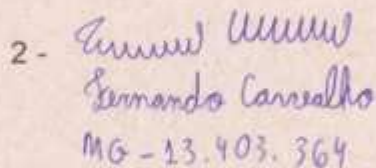 2 -
Fernando Carvalho
MG - 13.403.364